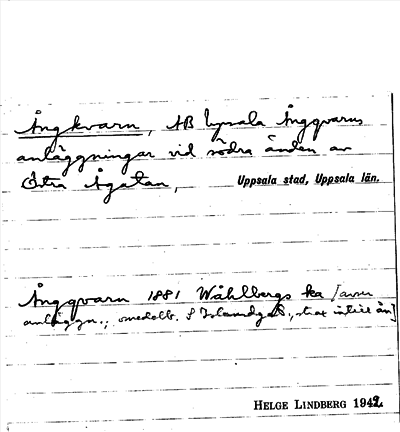 Ångkvarn, AB Upsala Ångqvarns
anläggningar vid södra änden av
Östra Ågatan, Uppsala stad, Uppsala län.
Ångqvarn 1881 Wåhlbergs ka [avser
anläggn.; omedelb. S Islandgat., strax intill ån]
HELGE LINDBERG 1942.